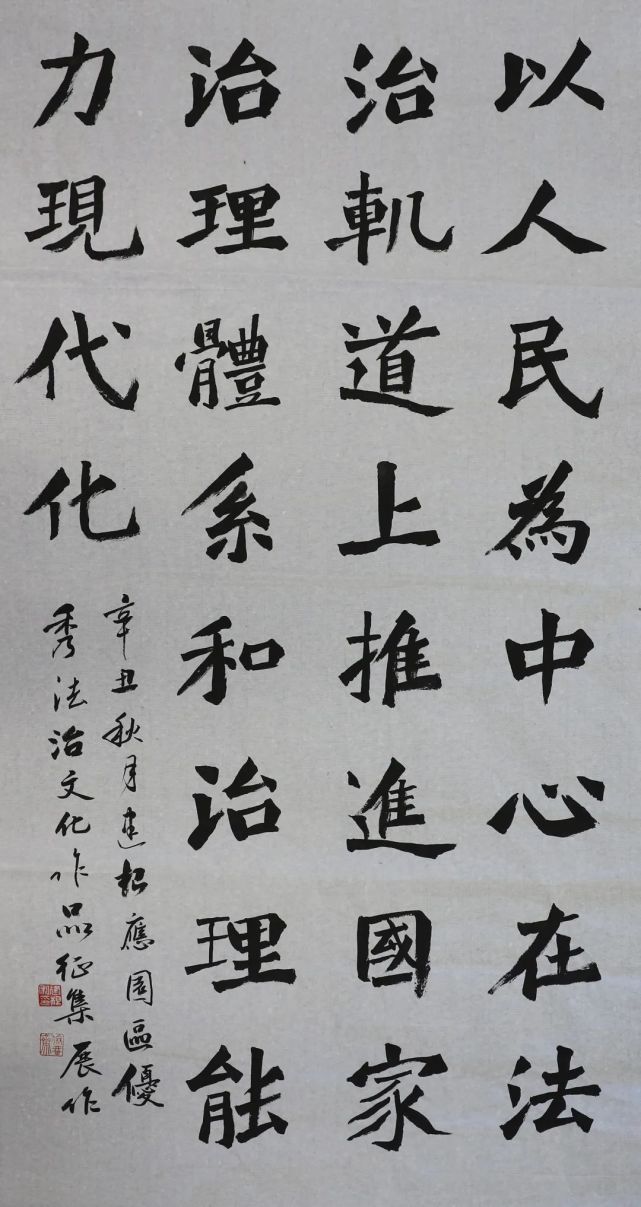 以人民為中心在法
治軌道上推進國家
治理體系和治理能
力現代化
辛丑秋月建超應園區優
秀法治文化作品征集展作